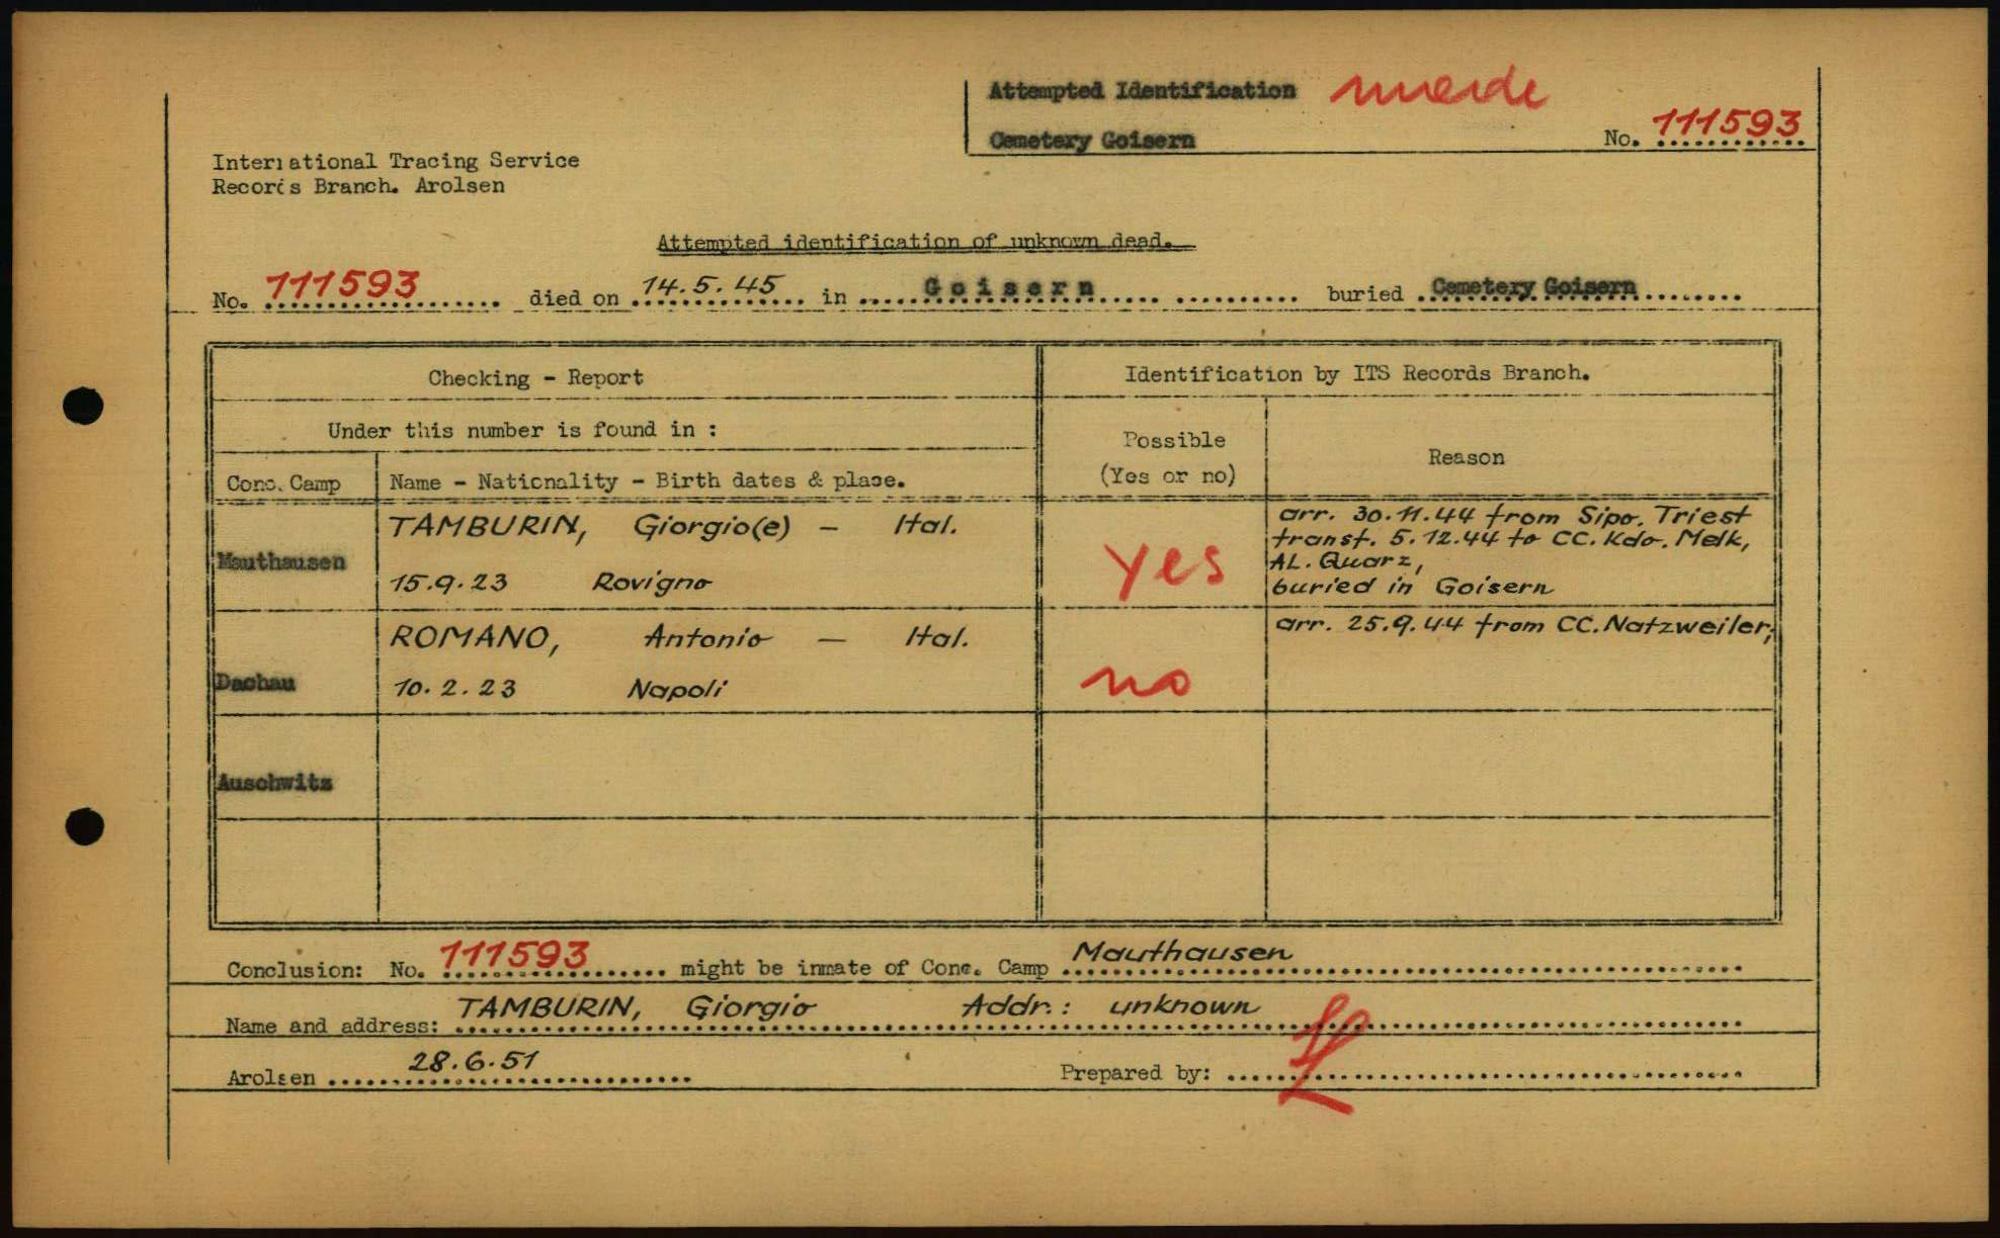 Attempted Identification made
Cemetery Goisern No. 111593
International Tracing Service
Records Branch. Arolsen
Attempted identification of unknown dead.
No. 111593 died on 14.5.45 in Goisern buried Cemetery Goisern
Checking - Report
Identification by ITS Records Branch.
Under this number is found in :
Possible
(Yes or no)
Reason
Conc. Camp
Name - Nationality - Birth dates & place.
Mauthausen
TAMBURIN, Giorgio(e) - Ital.
15.9.23 Rovigno
yes
arr. 30.11.44 from Sipo. Triest
transf. 5.12.44 to CC. Kdo. Melk,
AL. Quarz,
buried in Goisern
Dachau
ROMANO, Antonio - Ital.
10.2.23 Napoli
no
arr. 25.9.44 from CC. Natzweiler,
Auschwitz
Conclusion: No. 111593 might be inmate of Conc. Camp Mauthausen
Name and address: TAMBURIN, Giorgio Addr.: unknown
Arolsen 28.6.51 Prepared by: